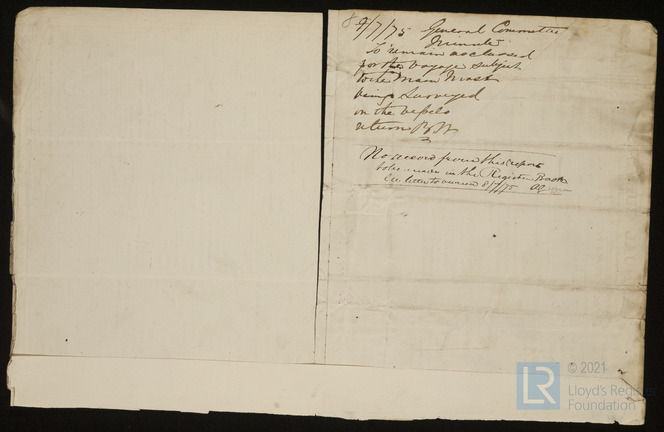 8/7/75 General Committee
Minute
To remain as classed
for the voyage subject
to the Main Mast
being surveyed
on the vessels
return
No record from this report
to be made in the Register Book
letter to owners 8/7/75
© 2021
LR
Lloyd's Register
Foundation